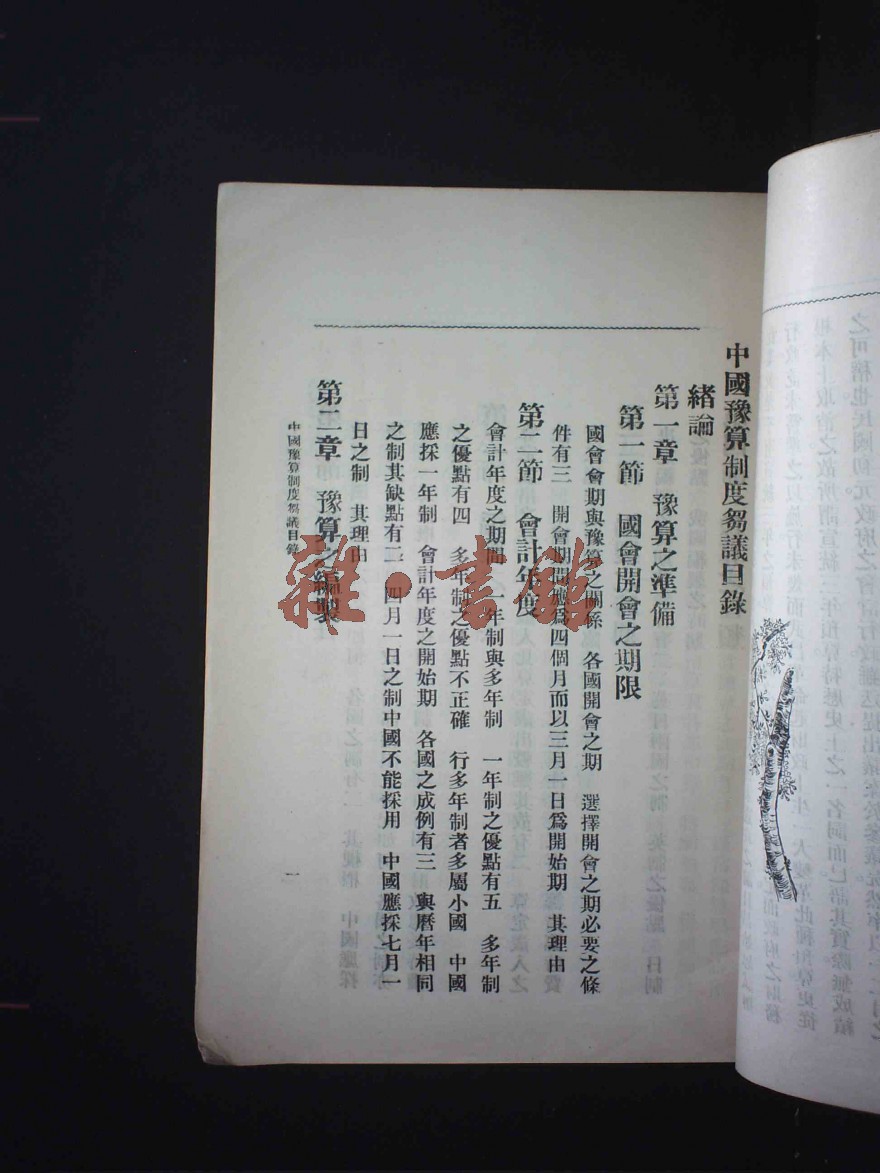 中國豫算制度芻議目錄
緒論
第一章 豫算之準備
第一節 國會開會之期限
國會會期與豫算之關係 各國開會之期 選擇開會之期必要之條
件有三 開會期間應爲四個月而以三月一日爲開始期 其理由
第二節 會計年度
會計年度之期間 一年制與多年制 一年制之優點有五 多年制
之優點有四 多年制之優點不正確 行多年制者多屬小國 中國
應採一年制 會計年度之開始期 各國之成例有三 與曆年相同
之制其缺點有二 四月一日之制中國不能採用 中國應採七月一
日之制 其理由
第二章 豫算之編製
中國豫算制度芻議目錄
一
雜·書館